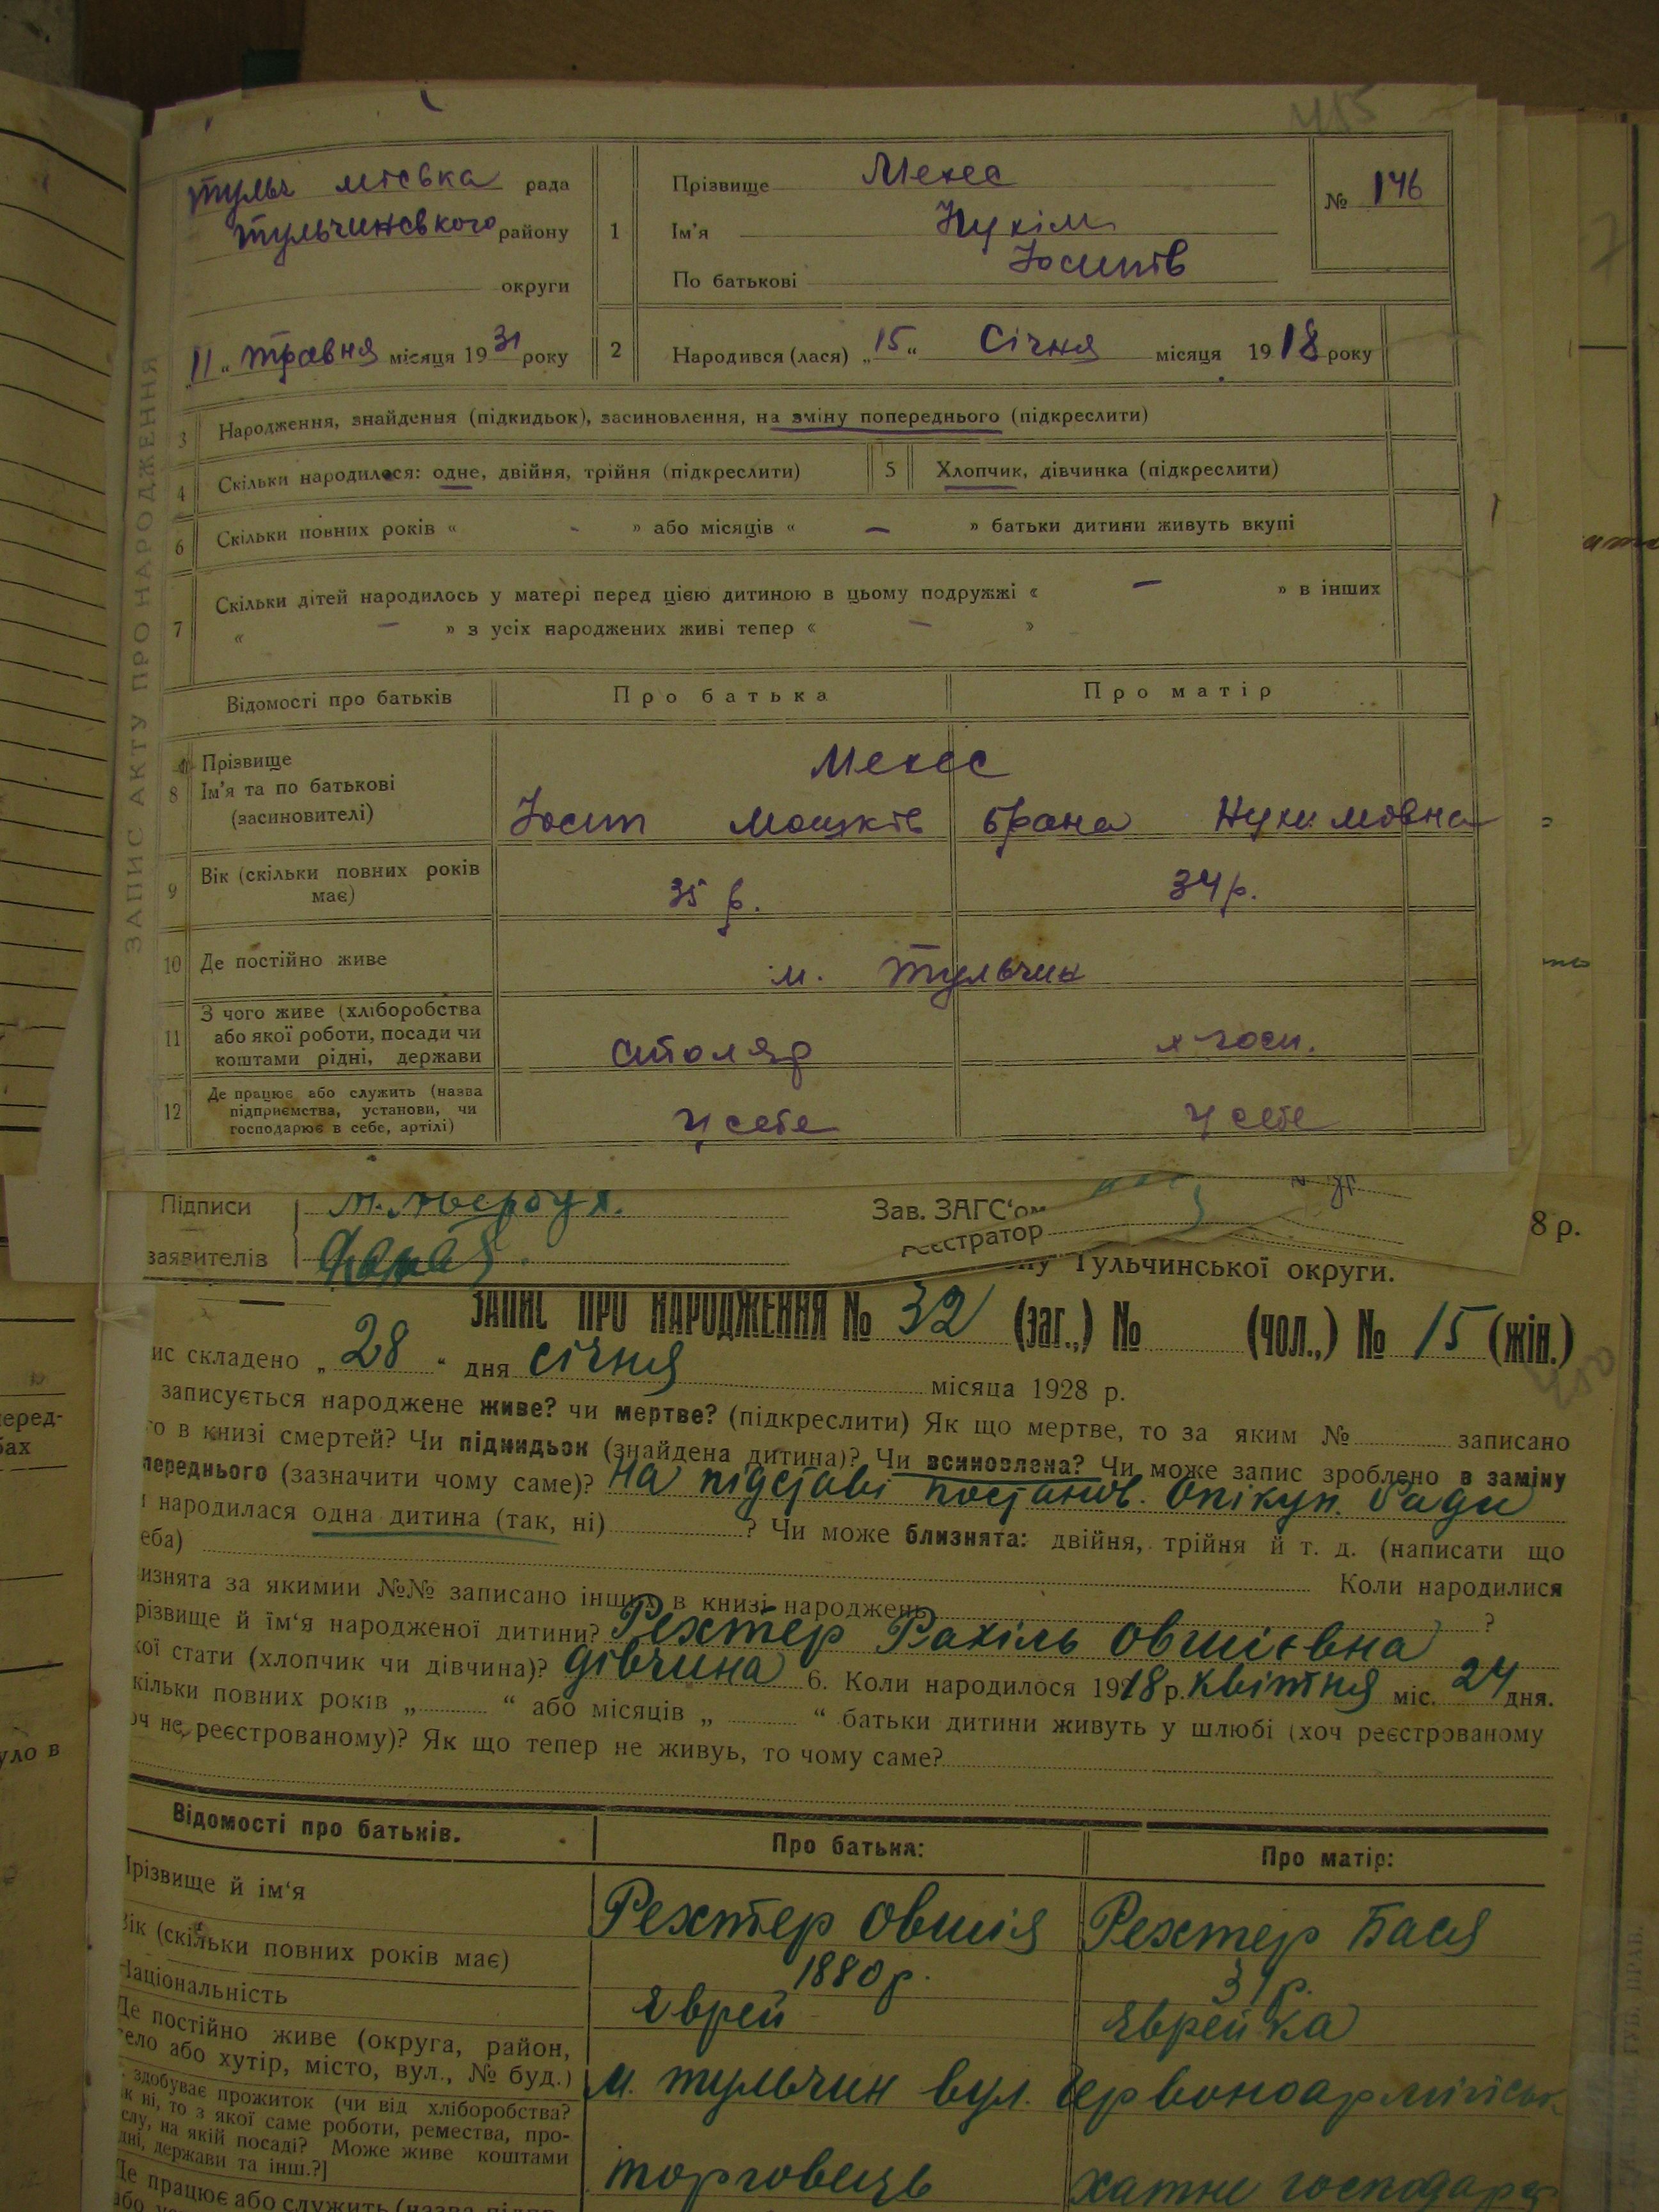 415
Тульч міська рада
Тульчинського району
округи
"11" травня місяця 1931 року
1
Прізвище Мекес
Ім'я Нухім
По батькові Йосипів
№ 146
2
Народився (лася) „15“ Січня місяця 1918 року
ЗАПИС АКТУ ПРО НАРОДЖЕННЯ
3 Народження, знайдення (підкидьок), засиновлення, на зміну попереднього (підкреслити)
4 Скільки народилося: одне, двійня, трійня (підкреслити)
5 Хлопчик, дівчинка (підкреслити)
6 Скільки повних років « - » або місяців « — » батьки дитини живуть вкупі
7 Скільки дітей народилось у матері перед цією дитиною в цьому подружжі « — » в інших
« — » з усіх народжених живі тепер « — »
Відомості про батьків Про батька Про матір
8 Прізвище
Ім'я та по батькові
(засиновителі)
Мекес
Йосип Мошків Брана Нухимовна
9 Вік (скільки повних років має)
35 р. 34 р.
10 Де постійно живе
м. Тульчин
11 З чого живе (хліборобства
або якої роботи, посади чи
коштами рідні, держави
столяр х госп.
12 Де працює або служить (назва
підприємства, установи, чи
господарює в себе, артілі)
у себе у себе
Підписи
заявителів
Зав. ЗАГС'ом
еєстратор
8 р.
ну Тульчинської округи.
ЗАПИС ПРО НАРОДЖЕННЯ № 32 (заг.,) № (чол.,) № 15 (жін.)
ис складено „28“ дня січня місяца 1928 р.
записується народжене живе? чи мертве? (підкреслити) Як що мертве, то за яким № записано
го в книзі смертей? Чи підкидьок (знайдена дитина)? Чи всиновлена? Чи може запис зроблено в заміну
переднього (зазначити чому саме)? На підставі постанов. Опікун. Ради
и народилася одна дитина (так, ні) ? Чи може близнята: двійня, трійня й т. д. (написати що
еба) Коли народилися
изнята за якимии №№ записано інших в книзі народжень ?
різвище й їм‘я народженої дитини? Рехтер Рахіль Овшієвна
кої стати (хлопчик чи дівчина)? дівчина 6. Коли народилося 1918 р. квітня міс. 24 дня.
кільки повних років „ “ або місяців „ “ батьки дитини живуть у шлюбі (хоч реєстрованому
оч не реєстрованому)? Як що тепер не живуь, то чому саме?
Відомості про батьків. Про батька: Про матір:
Прізвище й ім‘я
Рехтер Овшія Рехтер Бася
Вік (скільки повних років має)
1880 р. 31 р.
Національність
Яврей Яврейка
Де постійно живе (округа, район,
село або хутір, місто, вул., № буд.)
м. Тульчин вул. Червоноармійськ.
здобуває прожиток (чи від хліборобства?
як ні, то з якої саме роботи, ремества, про-
слу, на якій посаді? Може живе коштами
дні, держави та інш.?]
торговець хатне господарст
Де працює або служить (назва підпр
перед-
бах
уло в